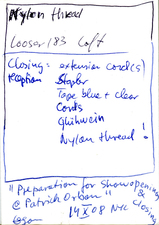 Nylon thread
Looser/183 Loft
Closing: extension cord(s)
Stapler
Tape blue + clear
Cords
Glühwein
Nylon thread!
"Preparation for Show opening &
@ Patrick Orban" closing
14 X 08 NYC